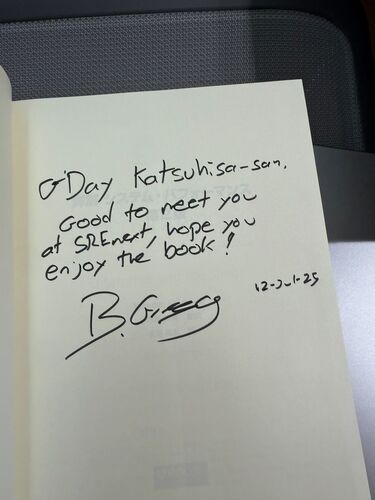 G'Day Katsuhisa-san,
Good to meet you
at SREnext, hope you
enjoy the book!
B. Gregg
12-Jul-25